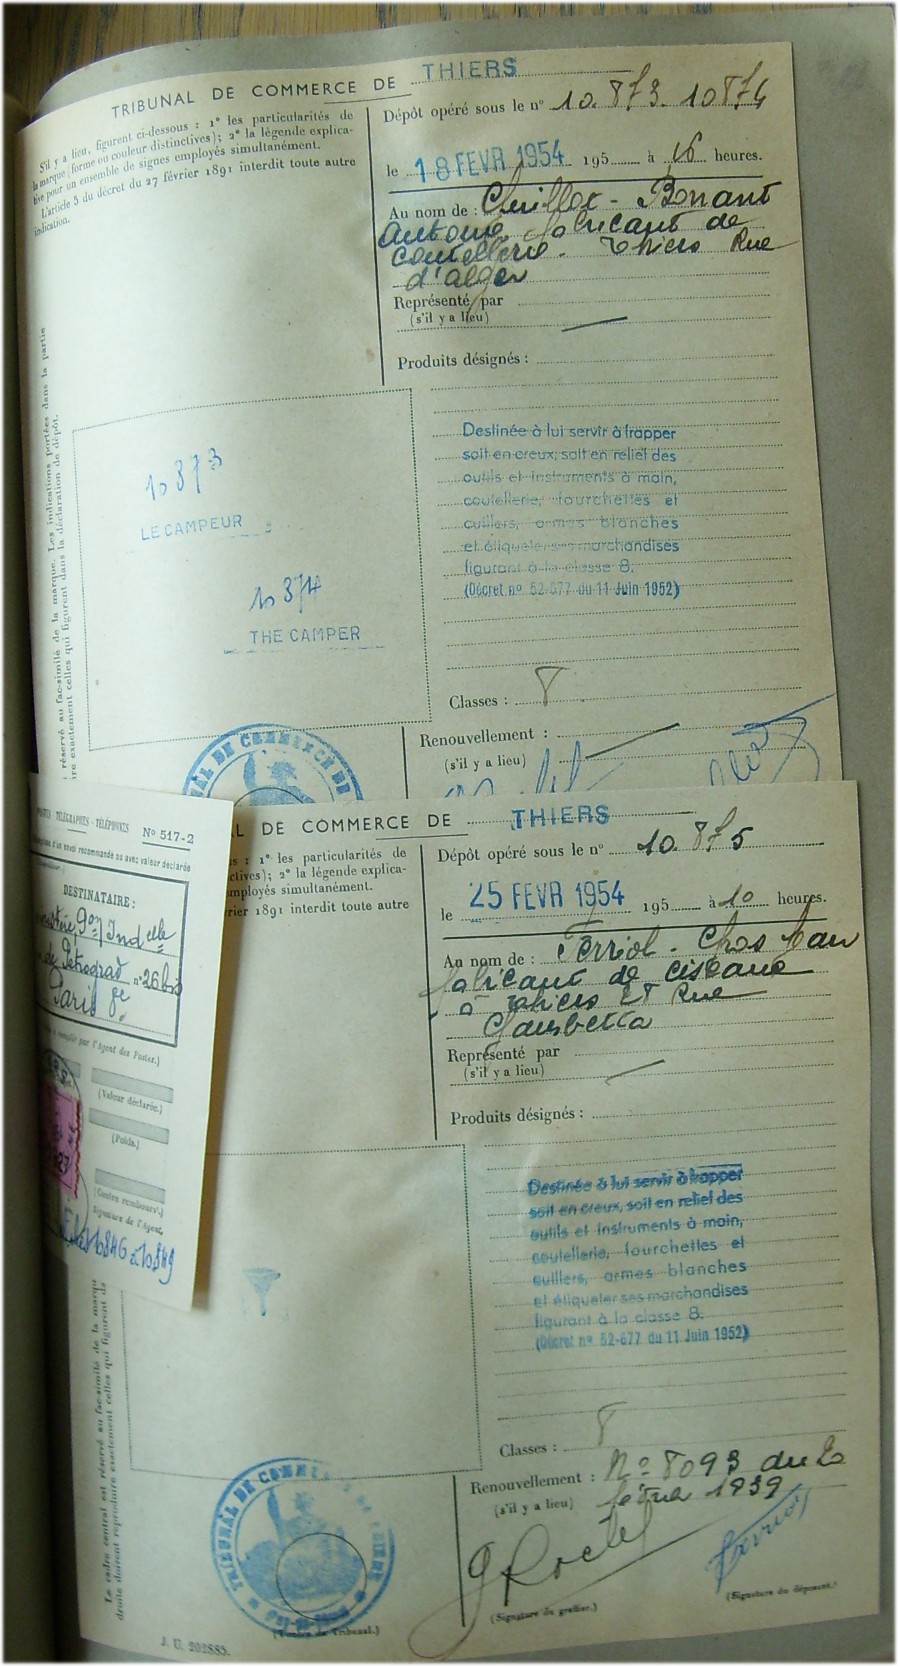 TRIBUNAL DE COMMERCE DE THIERS
S'il y a lieu, figurent ci-dessous : 1° les particularités de
la marque (forme ou couleur distinctives); 2° la légende explica-
tive pour un ensemble de signes employés simultanément.
L'article 5 du décret du 27 février 1891 interdit toute autre
indication.
Dépôt opéré sous le n° 10.873. 10874
le 18 FEVR 1954 195 à 16 heures.
Au nom de : Chillox - Bonant
Antoine fabricant de
coutellerie. Thiers Rue
d'alger
Représenté par
(s'il y a lieu)
Produits désignés :
10873
LE CAMPEUR
10874
THE CAMPER
Destinée à lui servir à frapper
soit en creux, soit en relief des
outils et instruments à main,
coutellerie, fourchettes et
cuillers, armes blanches
et étiqueter ses marchandises
figurant à la classe 8.
(Décret n° 52-677 du 11 Juin 1952)
Classes : 8
Renouvellement :
(s'il y a lieu)
réservé au fac-similé de la marque. Les indications portées dans la partie
ire exactement celles qui figurent dans la déclaration de dépôt.
TRIBUNAL DE COMMERCE DE
AL DE COMMERCE DE THIERS
: 1° les particularités de
ctives); 2° la légende explica-
mployés simultanément.
rier 1891 interdit toute autre
Dépôt opéré sous le n° 10.875
le 25 FEVR 1954 195 à 10 heures.
Au nom de : Ferriol - Chos
fabricant de ciseaux
à Thiers 27 Rue
Gambetta
Représenté par
(s'il y a lieu)
Produits désignés :
Destinée à lui servir à frapper
soit en creux, soit en relief des
outils et instruments à main,
coutellerie, fourchettes et
cuillers, armes blanches
et étiqueter ses marchandises
figurant à la classe 8.
(Décret n° 52-677 du 11 Juin 1952)
Classes : 8
Renouvellement : N° 8093 du 2
(s'il y a lieu) février 1939
(Signature du greffier.)
(Signature du déposant.)
(Timbre du Tribunal.)
TRIBUNAL DE COMMERCE DE THIERS
Puy-de-Dôme
Le cadre central est réservé au fac-similé de la marqu
droite doivent reproduire exactement celles qui figurent da
J. U. 202885.
POSTES - TÉLÉGRAPHES - TÉLÉPHONES
N° 517-2
d'un envoi recommandé ou avec valeur déclarée
DESTINATAIRE :
Indelle
de Pétrograd n° 26 bis
Paris 8e
à remplir par l'Agent des Postes.)
(Valeur déclarée.)
(Poids.)
(Contre rembours'.)
Signature de l'Agent,
10846 à 10849